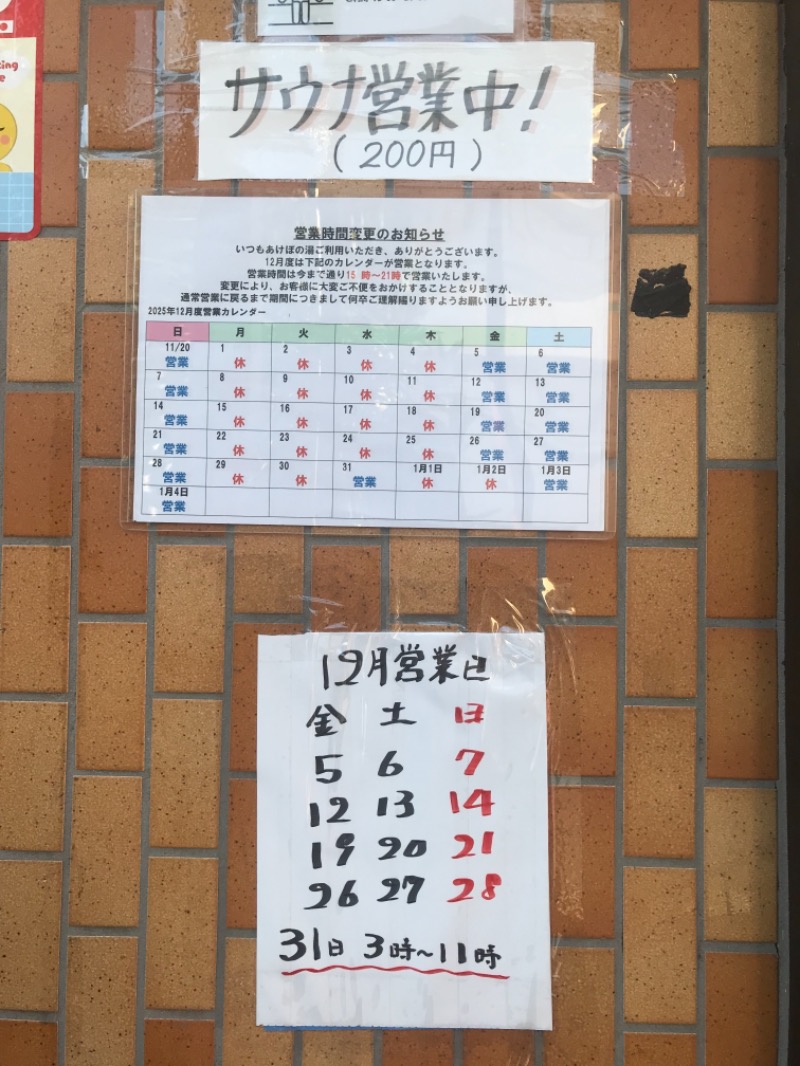 サウナ営業中!
(200円)
営業時間変更のお知らせ
いつもあけぼの湯ご利用いただき、ありがとうございます。
12月度は下記のカレンダーが営業となります。
営業時間は今まで通り15時～21時で営業いたします。
変更により、お客様に大変ご不便をおかけすることとなりますが、
通常営業に戻るまで期間につきまして何卒ご理解賜りますようお願い申し上げます。
2025年12月度営業カレンダー
日 月 火 水 木 金 土
11/20 1 2 3 4 5 6
営業 休 休 休 休 営業 営業
7 8 9 10 11 12 13
営業 休 休 休 休 営業 営業
14 15 16 17 18 19 20
営業 休 休 休 休 営業 営業
21 22 23 24 25 26 27
営業 休 休 休 休 営業 営業
28 29 30 31 1月1日 1月2日 1月3日
営業 休 休 営業 休 休 営業
1月4日
営業
12月営業日
金 土 日
5 6 7
12 13 14
19 20 21
26 27 28
31日 3時～11時